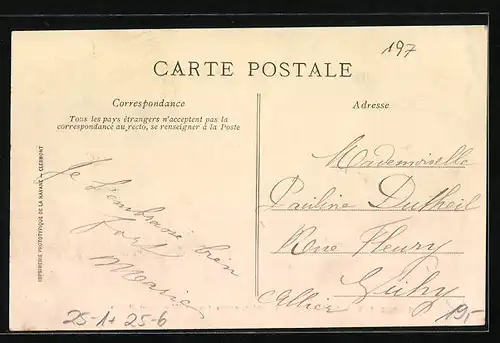 197
CARTE POSTALE
Correspondance
Tous les pays étrangers n'acceptent pas la
correspondance au recto, se renseigner à la Poste
Adresse
IMPRIMERIE PHOTOTYPIQUE DE LA MARANE – CLERMONT
Je t'embrasse bien
fort
Marie
Mademoiselle
Pauline Dutheil
Rue Fleury
Vichy
Allier
25-1+ 25-6
19,-